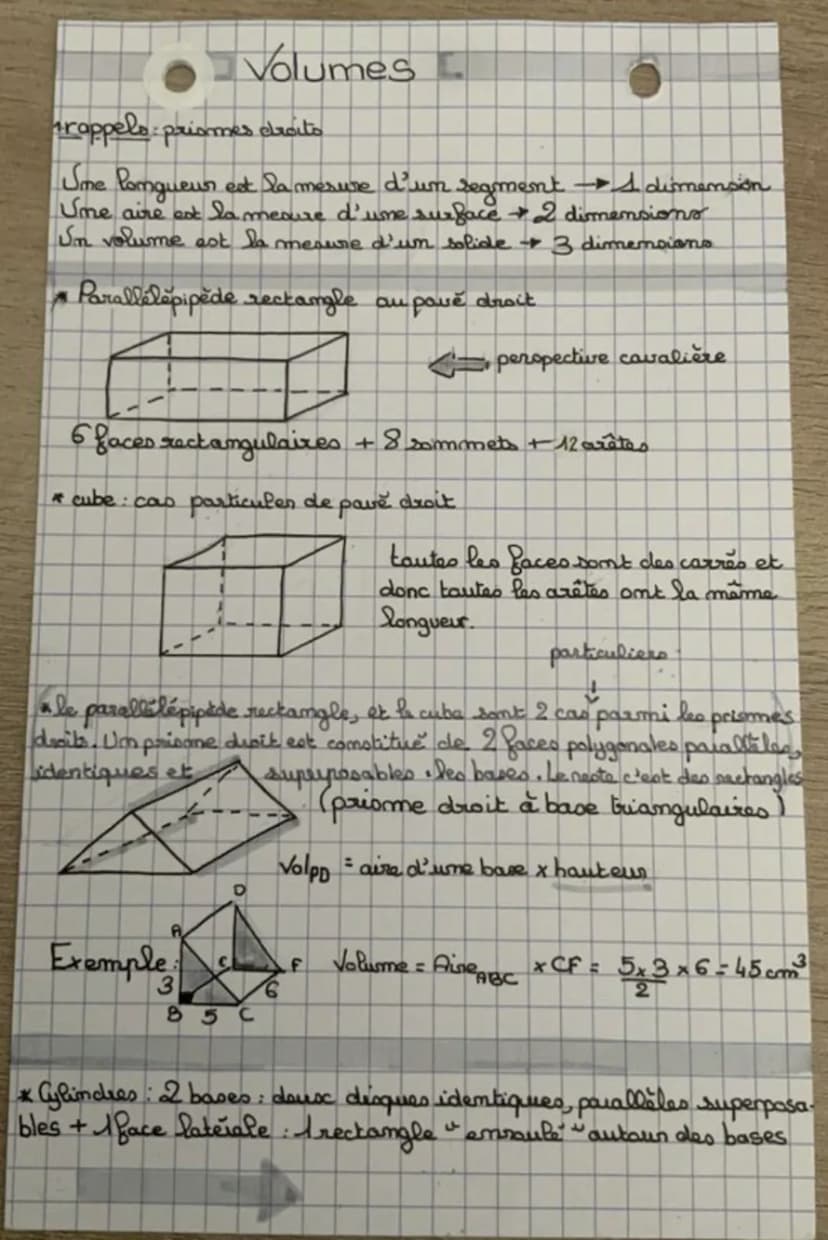 Volumes
rappels : prismes droits
Une longueur est la mesure d'un segment → 1 dimension
Une aire est la mesure d'une surface → 2 dimensions
Un volume est la mesure d'un solide → 3 dimensions
* Parallélépipède rectangle ou pavé droit
perspective cavalière
6 faces rectangulaires + 8 sommets + 12 arêtes
* cube : cas particulier de pavé droit
toutes les faces sont des carrés et
donc toutes les arêtes ont la même
longueur.
particuliers
↓
* le parallélépipède rectangle, et le cube sont 2 cas parmi les prismes
droits. Un prisme droit est constitué de 2 faces polygonales parallèles,
identiques et superposables : les bases. Le reste c'est des rectangles
(prisme droit à base triangulaires)
Vol PD = aire d'une base x hauteur
Exemple :
A D C F 3 6 B 5 C
Volume = Aire ABC x CF = 5x3/2 x 6 = 45 cm³
* Cylindres : 2 bases : deux disques identiques, parallèles superposa-
bles + 1 face latérale : 1 rectangle "enroulé" autour des bases